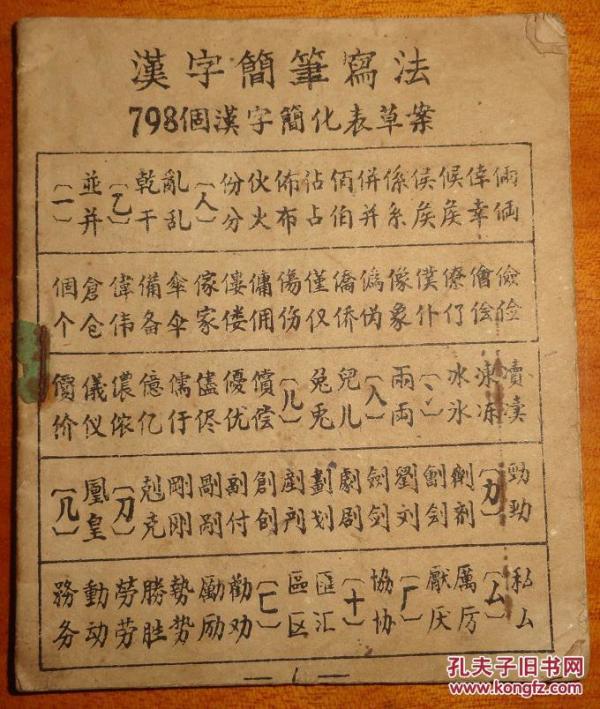 漢字簡筆寫法
798個漢字簡化表草案
〔一〕 並 〔乙〕 乾 亂 〔人〕 份 伙 佈 佔 佰 併 係 侯 候 倖 倆
并 干 乱 分 火 布 占 伯 并 系 矦 矦 幸 俩
個 倉 偉 備 傘 傢 僂 傭 傷 僅 僑 僞 像 僕 僚 儈 儉
个 仓 伟 备 伞 家 偻 佣 伤 仅 侨 伪 象 仆 侩 俭
價 儀 儂 億 儒 儘 優 償 〔儿〕 兔 兒 〔入〕 兩 〔冫〕 冰 凍
价 仪 侬 亿 侭 优 偿 兎 儿 両 氷 冻
〔几〕 凰 〔刀〕 剋 剛 剮 副 創 劃 劇 劍 劉 劊 劑 〔力〕 勁
皇 克 刚 剐 付 创 划 剧 剑 刘 刽 剂 劲
務 動 勞 勝 勢 勵 勸 〔匚〕 區 匯 〔十〕 協 〔厂〕 厭 厲 〔厶〕 私
务 动 劳 胜 势 励 劝 区 汇 协 厌 厉 厶
— 1 —
孔夫子旧书网
www.kongfz.com